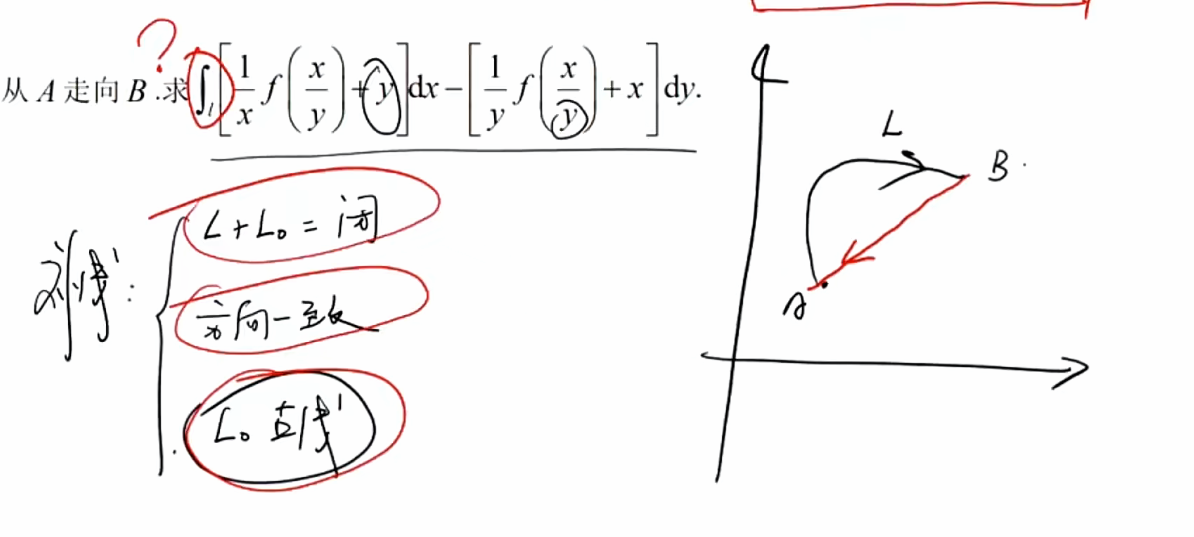 从 A 走向 B .求 ∫_l [ 1/x f ( x/y ) + y ] dx − [ 1/y f ( x/y ) + x ] dy.
?
L
B
A
补线:
L + L₀ = 闭
方向一致
L₀ 直线